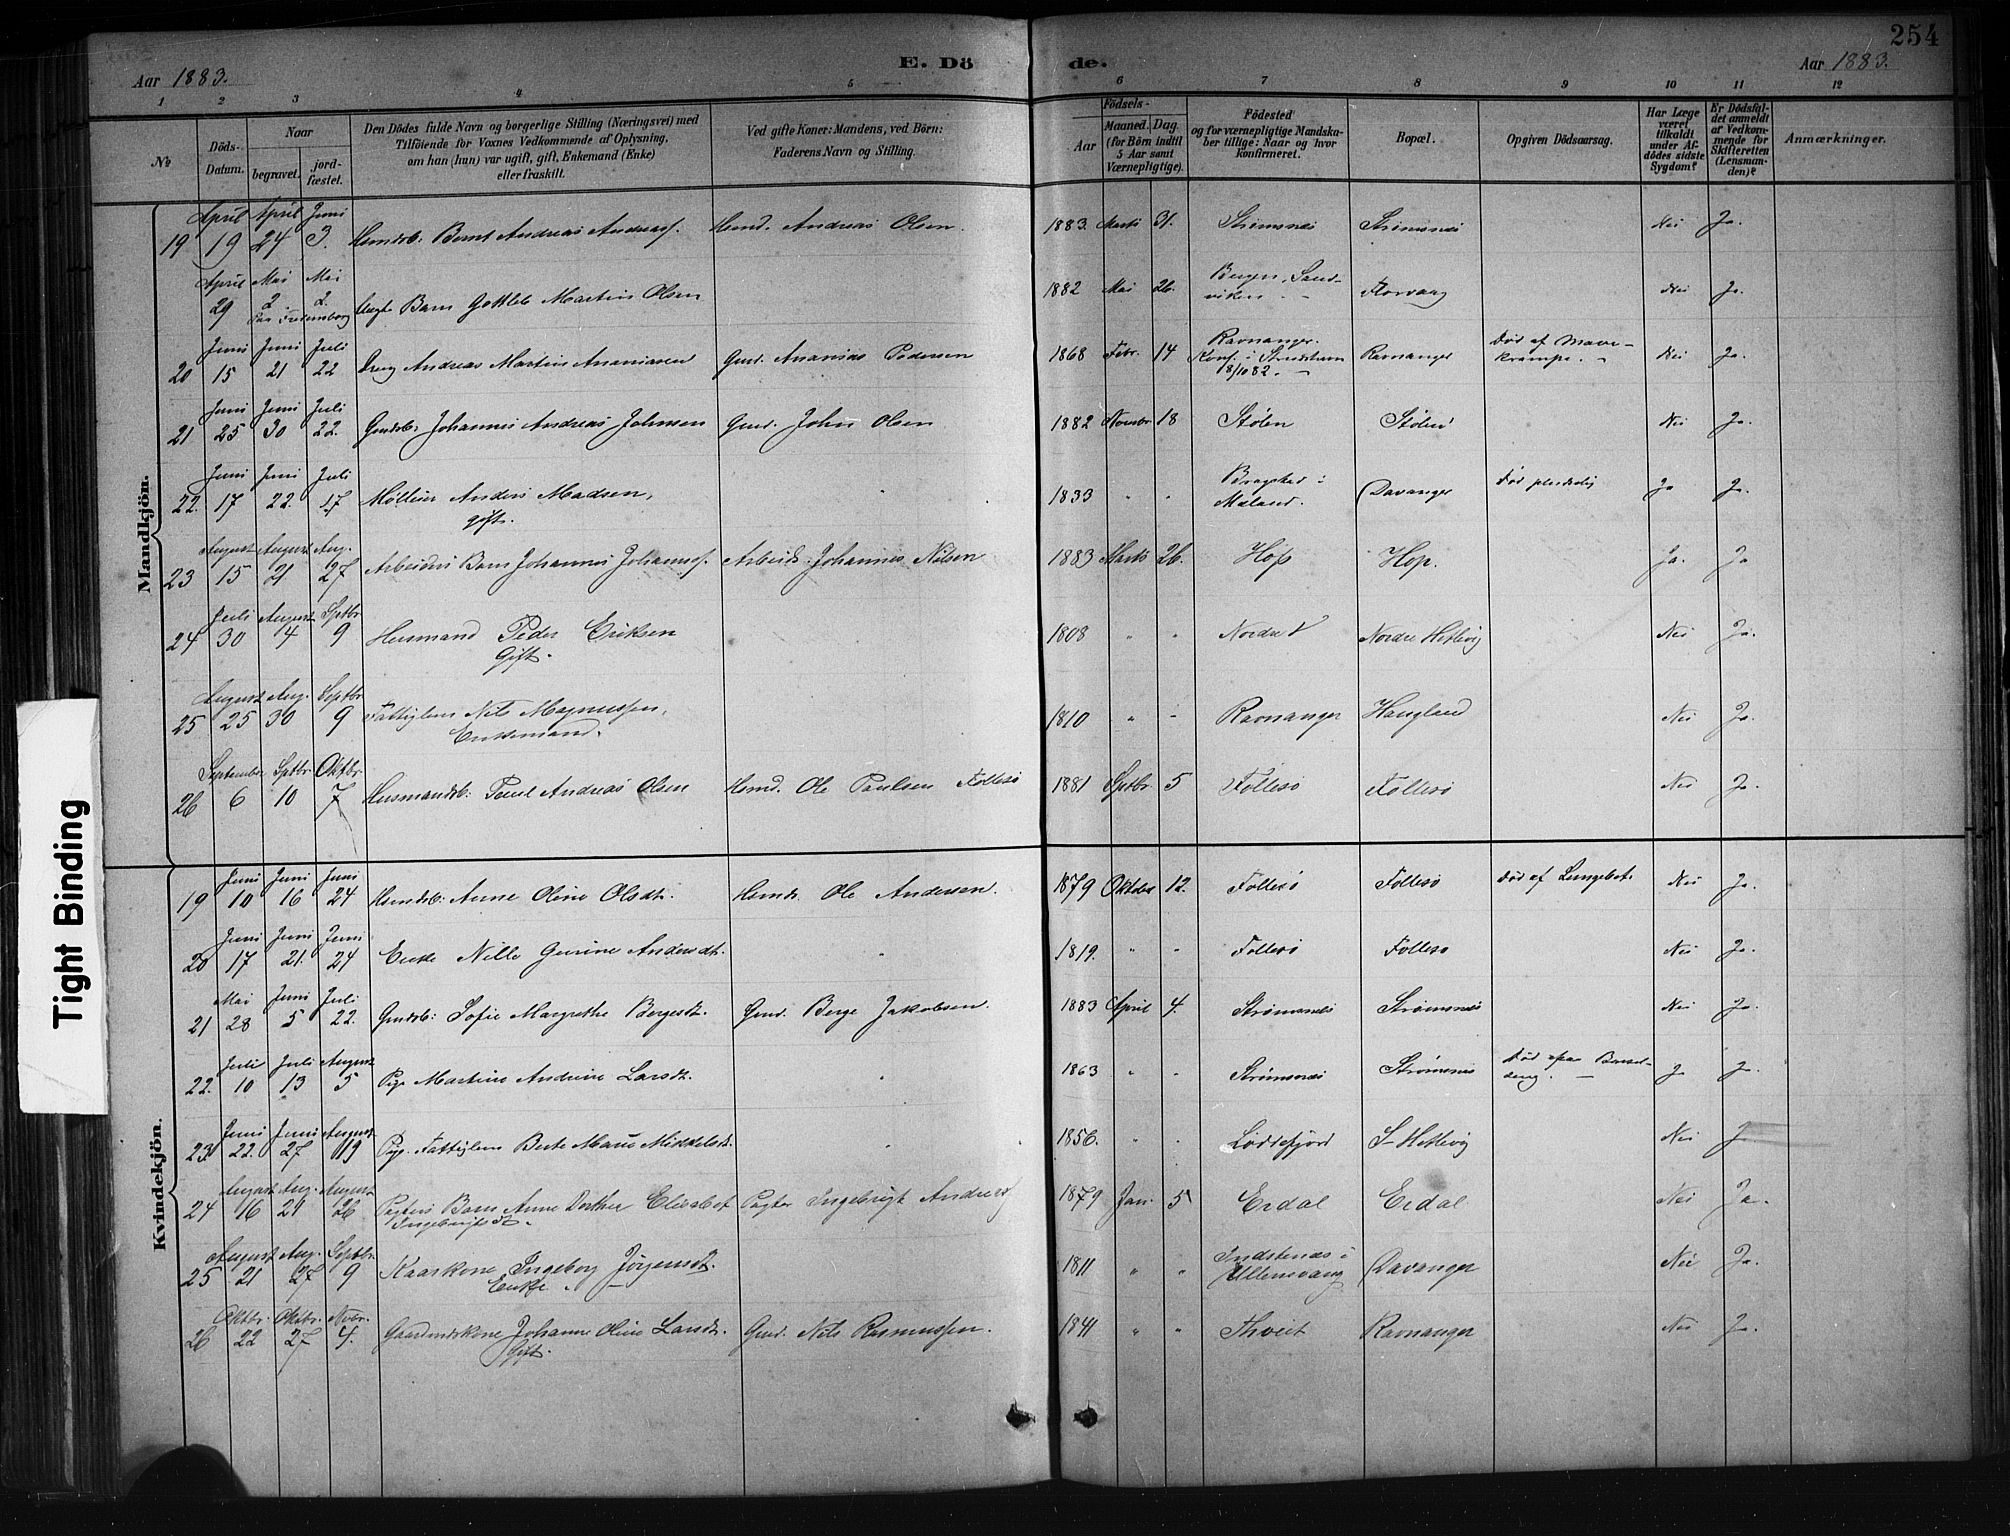 254
Aar 1883.
E. Dö de.
Aar 1883.
1 2 3 4 5 6 7 8 9 10 11 12
No
Döds-Datum.
Naar
begravet.
jord-fæstet.
Den Dödes fulde Navn og borgerlige Stilling (Næringsvei) med
Tilföiende for Voxnes Vedkommende af Oplysning,
om han (hun) var ugift, gift, Enkemand (Enke)
eller fraskilt.
Ved gifte Koner: Mandens, ved Börn:
Faderens Navn og Stilling.
Födsels-
Aar
Maaned. Dag.
(for Börn indtil
5 Aar samt
Værnepligtige).
Födested
og for værnepligtige Mandska-
ber tillige: Naar og hvor
konfirmeret.
Bopæl.
Opgiven Dödsaarsag.
Har Læge
været
tilkaldt
under Af-
dödes sidste
Sygdom?
Er Dödsfal-
det anmeldt
af Vedkom-
mende for
Skifteretten
(Lensman-
den)?
Anmærkninger.
Mandkjön.
19 April 19 April 24 Juni 3. Hsmdsb: Bernt Andreas Andreass. Hsmd. Andreas Olsen. 1883. Marts 31. Strømsnes Strømsnes Nei Ja.
April 29 Mai 2 Mai 2. Barn Gottlieb Martin Olsen 1882 Mai 26. Bergen, Sand-
viken Florvaag Nei Ja.
20 Juni 15 Juni 21 Juli 22 Dreng Andreas Martin Ananiasen Gmd. Ananias Pedersen 1868 Febr. 14 Ravnanger.
Konf. i
8/10 82. Ravnanger Død af Mave-
krampe. Nei Ja.
21 Juni 25 Juni 30 Juli 22. Gmdsb: Johannes Andreas Johnsen Gmd. John Olsen 1882 Novbr 18 Stølen Stølen Nei Ja.
22. Juni 17 Juni 22. Juli 17 Møller Anders Madsen,
gift. 1833 " " i
Davanger Død Ja Ja.
23 August 15 August 21 Aug. 27 Arbeiders Barn Johannes Johanness. Arbeid. Johannes Nilsen 1883 Marts 26. Hop Hop. Ja. Ja
24 Juli 30 August 4 Sptbr 9 Husmand Peder Eriksen
Gift. 1808 " " Nordre Hetlevig Nei Ja.
25 August 25 Aug. 30 Septbr 9 Fattiglem Nils Magnussen,
Enkemand. 1810 " " Ravnanger Haugland Nei Ja.
26 September 6 Sptbr. 10 Oktbr. 7 Husmandsb: Poul Andreas Olsen Hsmd. Ole Paulsen Follesø 1881 Sptbr. 5 Follesø Follesø Nei Ja.
Kvindekjön.
19 Juni 10 Juni 16 Juni 24 Hsmdsb: Anne Oline Olsdt. Hsmd. Ole Andersen. 1879 Oktober 12. Follesø Follesø Død af Lungebet. Nei Ja.
20 Juni 17 Juni 21. Juni 24 Enke Nille Gurine Andersdt. 1819. " " Follesø Follesø Nei Ja.
21 Mai 28 Juni 5 Juli 22. Gmdsb: Sofie Margrethe Bergesdt. Gmd. Berge Jakobsen. 1883 April 4. Strømsnes Strømsnes Nei Ja.
22. Juli 10 Juli 13 August 5 Pige Martine Andrine Larsdt. 1863 " " Strømsnes Strømsnes Død paa Barsel-
seng. Ja Ja.
23. Juni 22. Juni 27 August 19 Pige. Fattiglem Berte Marie Mikkelsdt. 1856. " " Loddefjord S Hetlevig Nei Ja
24 August 16 Aug. 21 August 26 Pagters Barn Anne Dorthea Elisabet
Ingebrigtsdt. Pagter Ingebrigt Anders 1879 Jan. 5 Erdal Erdal Nei Ja.
25 August 21 Aug. 27 Septbr. 9 Kaarkone Ingeborg Jørgensdt.
Enke 1811 " " Indstenæs i
Ullensvang Davanger Nei Ja.
26 Oktbr. 22 Oktbr. 27 Novbr. 4. Gaardmdskone Johanne Oline Larsdt.
Gift. Gmd. Nils Rasmussen. 1841 " " Thveit Ravnanger Nei Ja.
Tight Binding